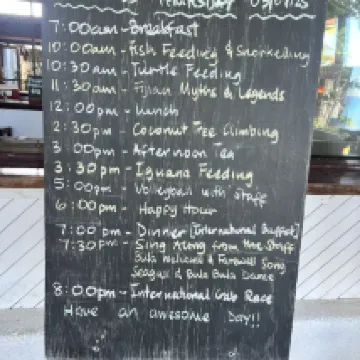 THURSDAY 03/07/25
7:00am - Breakfast
10:00am - Fish Feeding & Snorkeling
10:30am - Turtle Feeding
11:30am - Fijian Myths & Legends
12:00pm - Lunch
2:30pm - Coconut Tree Climbing
3:00pm - Afternoon Tea
3:30pm - Iguana Feeding
5:00pm - Volleyball with Staff
6:00pm - Happy Hour
7:00pm - Dinner [International Buffet]
7:30pm - Sing Along from the Staff
Bula Welcome & Farewell Song
Seagas & Bula Bula Dance
8:00pm - International Crab Race
Have an awesome Day!!